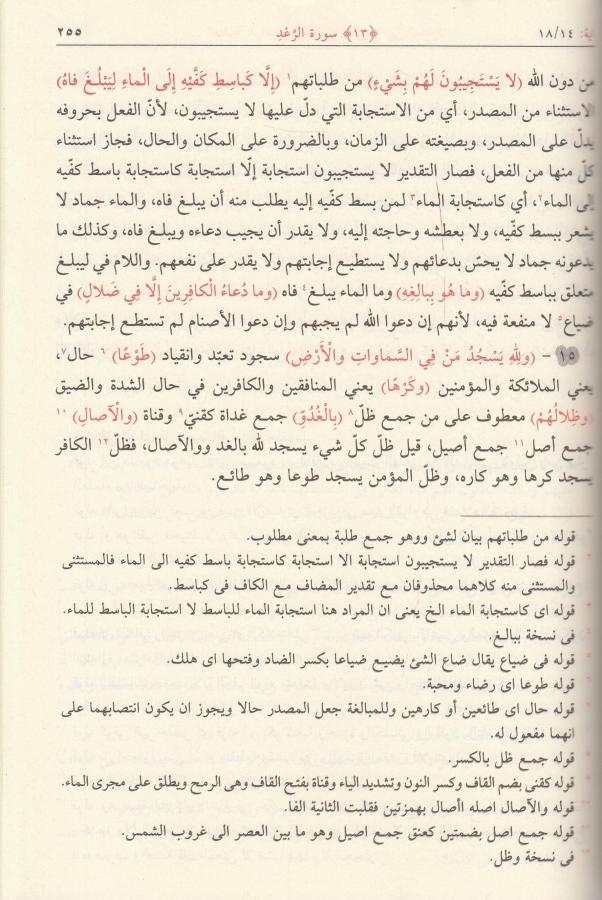 ية: ١٨/١٤ ﴿١٣﴾ سورة الرَّعْدِ ٢٥٥
من دون الله (لا يَسْتَجِيبُونَ لَهُمْ بِشَيْءٍ) من طلباتهم١ (إلَّا كَباسِطِ كَفَّيْهِ إلَى الْماءِ لِيَبْلُغَ فاهُ)
الاستثناء من المصدر، أي من الاستجابة التي دلّ عليها لا يستجيبون، لأنّ الفعل بحروفه
يدلّ على المصدر، وبصيغته على الزمان، وبالضرورة على المكان والحال، فجاز استثناء
كلّ منها من الفعل، فصار التقدير لا يستجيبون استجابة إلّا استجابة كاستجابة باسط كفّيه
إلى الماء٢، أي كاستجابة الماء٣ لمن بسط كفّيه إليه يطلب منه أن يبلغ فاه، والماء جماد لا
يشعر ببسط كفّيه، ولا بعطشه وحاجته إليه، ولا يقدر أن يجيب دعاءه ويبلغ فاه، وكذلك ما
يدعونه جماد لا يحسّ بدعائهم ولا يستطيع إجابتهم ولا يقدر على نفعهم. واللام في ليبلغ
متعلق بباسط كفّيه (وما هُو بِبالِغِهِ) وما الماء يبلغ٤ فاه (وما دُعاءُ الْكافِرِينَ إلَّا فِي ضَلالٍ) في
ضياع٥ لا منفعة فيه، لأنهم إن دعوا الله لم يجبهم وإن دعوا الأصنام لم تستطع إجابتهم.
١٥ - (ولِلهِ يَسْجُدُ مَنْ فِي السَّماواتِ والْأَرْضِ) سجود تعبّد وانقياد (طَوْعًا)٦ حال٧،
يعني الملائكة والمؤمنين (وكَرْهًا) يعني المنافقين والكافرين في حال الشدة والضيق
(وظِلالُهُمْ) معطوف على من جمع ظلّ٨ (بِالْغُدُوِّ) جمع غداة كقنيّ٩ وقناة (والْآصالِ)١٠
جمع أصل١١ جمع أصيل، قيل ظلّ كلّ شيء يسجد لله بالغد ووالآصال، فظلّ١٢ الكافر
يسجد كرها وهو كاره، وظلّ المؤمن يسجد طوعا وهو طائع.
قوله من طلباتهم بيان لشئ ووهو جمع طلبة بمعنى مطلوب.
قوله فصار التقدير لا يستجيبون استجابة الا استجابة كاستجابة باسط كفيه الى الماء فالمستثنى
والمستثنى منه كلاهما محذوفان مع تقدير المضاف مع الكاف في كباسط.
قوله اى كاستجابة الماء الخ يعنى ان المراد هنا استجابة الماء للباسط لا استجابة الباسط للماء.
فى نسخة ببالغ.
قوله فى ضياع يقال ضاع الشئ يضيع ضياعا بكسر الضاد وفتحها اى هلك.
قوله طوعا اى رضاء ومحبة.
قوله حال اى طائعين أو كارهين وللمبالغة جعل المصدر حالا ويجوز ان يكون انتصابهما على
انهما مفعول له.
قوله جمع ظل بالكسر.
قوله كقنى بضم القاف وكسر النون وتشديد الياء وقناة بفتح القاف وهى الرمح ويطلق على مجرى الماء.
قوله والآصال اصله اأصال بهمزتين فقلبت الثانية الفا.
قوله جمع اصل بضمتين كعنق جمع اصيل وهو ما بين العصر الى غروب الشمس.
فى نسخة وظل.